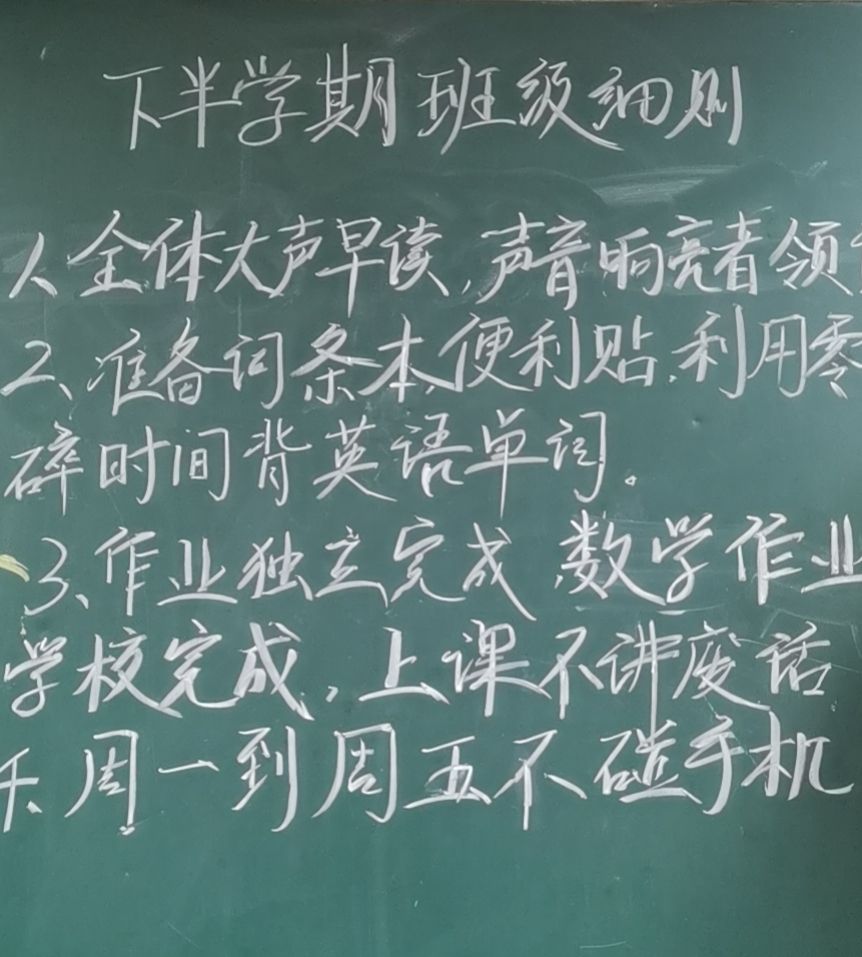 下半学期班级细则
1、全体大声早读,声音响亮者领
2、准备词条本,便利贴,利用零
碎时间背英语单词。
3、作业独立完成 数学作业
学校完成,上课不讲废话
4、周一到周五不碰手机